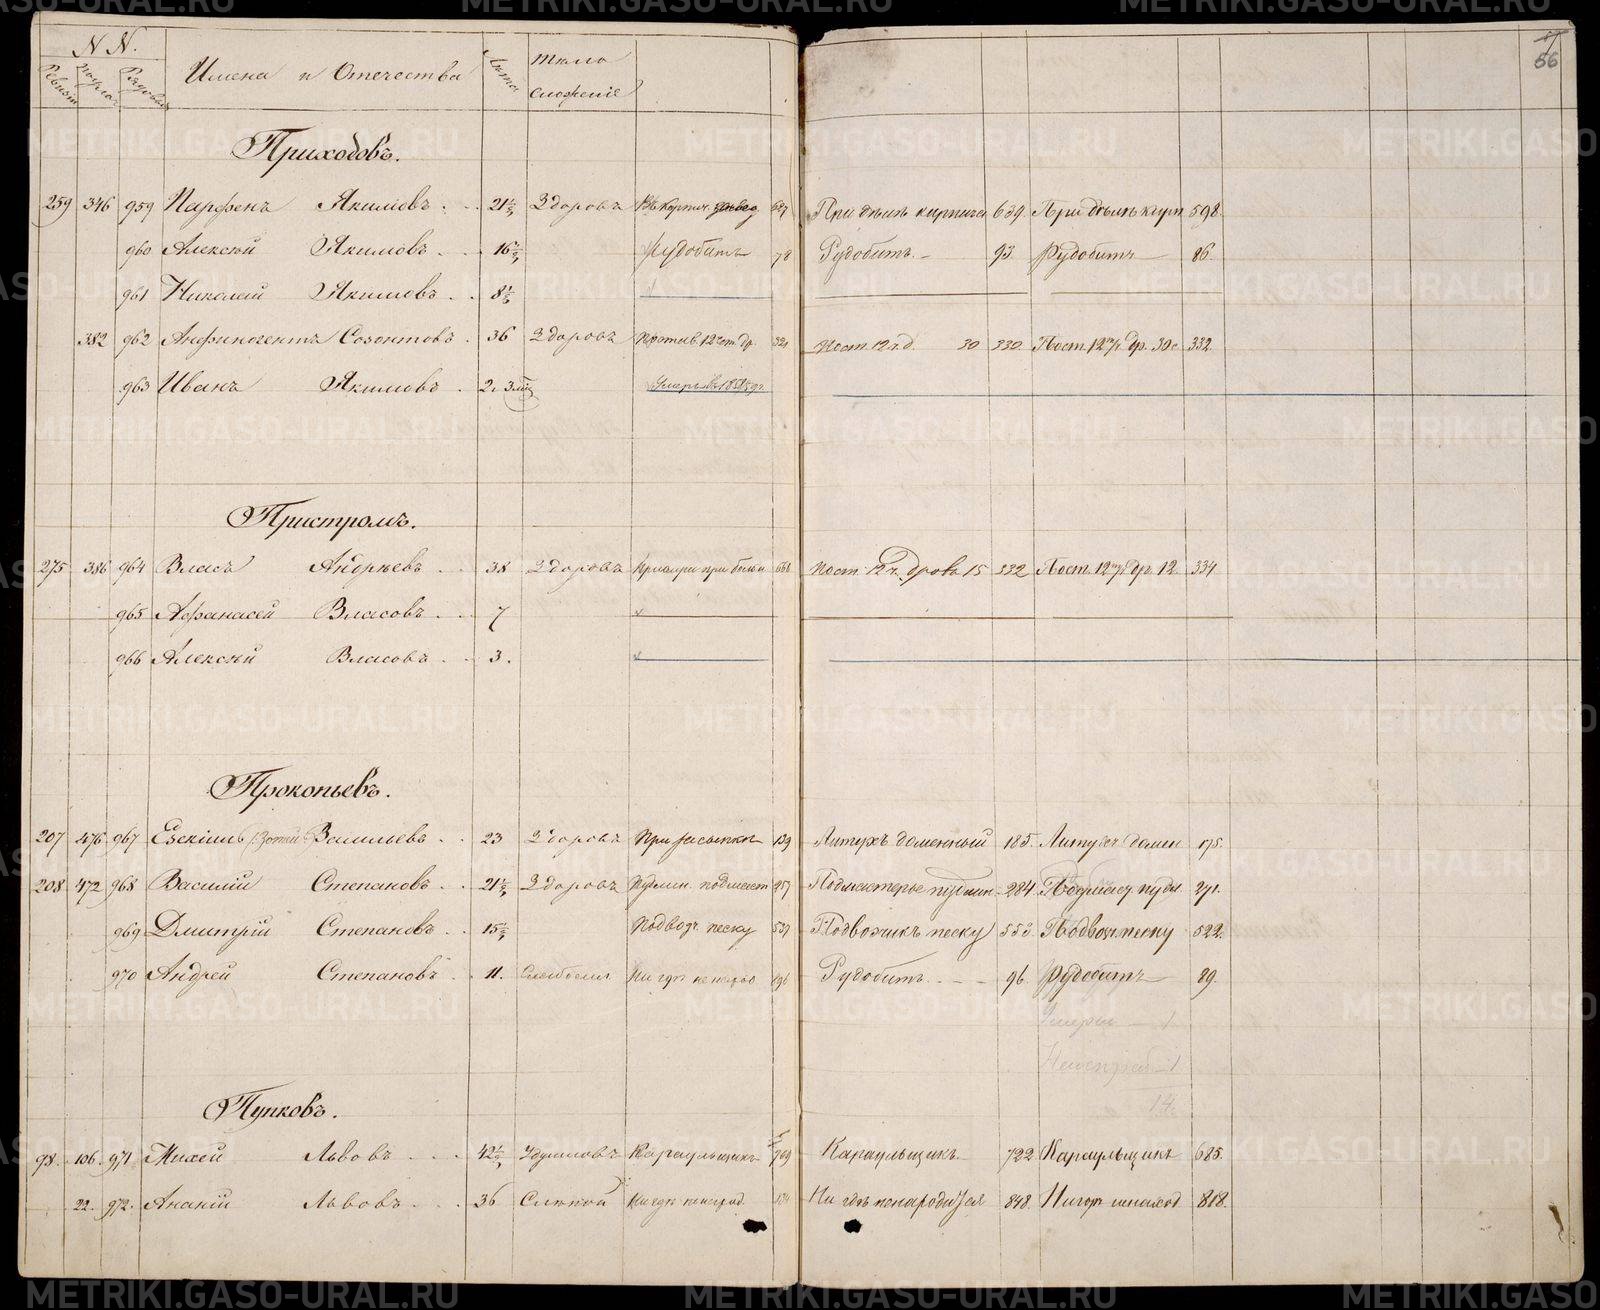 N N.
Ревизіи
Рядовые
Имена и Отечества
Лѣта
Тѣло сложеніе
56
Приходовъ.
259 346 959 Парфенъ Якимовъ . . 21½ Здоровъ Въ Кирпич. 627 При дѣлѣ кирпича 639. При дѣлѣ кирп. 598.
960 Алексѣй Якимовъ . . 16½ Рудобитъ 78 Рудобитъ 93. Рудобитъ 86.
961 Николай Якимовъ . . 8½
382 962 Анфиногентъ Созонтовъ . 36 Здоровъ 12 чет. др. 321 пост. 12 ч. д. 30 330. Пост. 12 др. 30 332.
963 Иванъ Якимовъ . 2. 3 мѣ
Пристромъ.
275 386 964 Власъ Андреевъ . . 38 Здоровъ при 661 пост. 12 ч. дровъ 15 332 Пост. 12 др. 12. 334.
965 Афанасей Власовъ . . 7
966 Алексѣй Власовъ . . 3.
Прокопьевъ.
207 476 967 Езекіиль (: Зотей Васильевъ . . 23 Здоровъ При засыпкѣ 159 Литухъ доменный 185. Литухъ домен 175.
208 472 968 Василій Степановъ . . 21½ Здоровъ Пудлин. подмаст 257 Подмастерье пудлин. 284. Подмаст пудл. 271.
969 Дмитрій Степановъ . . 15½ Подвозч. песку 537 Подвозчикъ песку 553. Подвозч. песку 522.
970 Андрей Степановъ . 11. Ни гдѣ не наряд 896 Рудобитъ . - - - 96. Рудобитъ 89.
Умерш — 1
14.
Пупковъ.
98. 106. 971 Михей Львовъ . . . 42½ Здоровъ Караульщикъ 709 Караульщикъ. 722 Караульщикъ 685.
22. 972. Ананій Львовъ . . . 36 Слѣпой Ни гдѣ не наряд. Ни гдѣ ненародится 848. Ни гдѣ 818.
METRIKI.GASO-URAL.RU